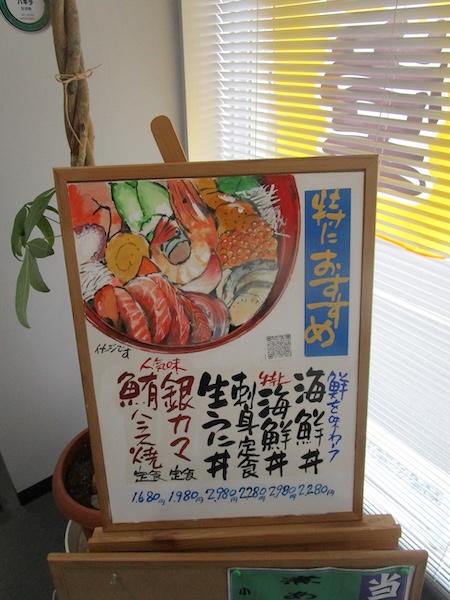 特におすすめ
イメージです
鮮を味わう
海鮮丼
2,280円
特上
海鮮丼
2,980円
刺身定食
2,280円
生うに丼
2,980円
人気味
銀カマ定食
1,980円
鮪ハラス焼定食
1,680円
当
煮